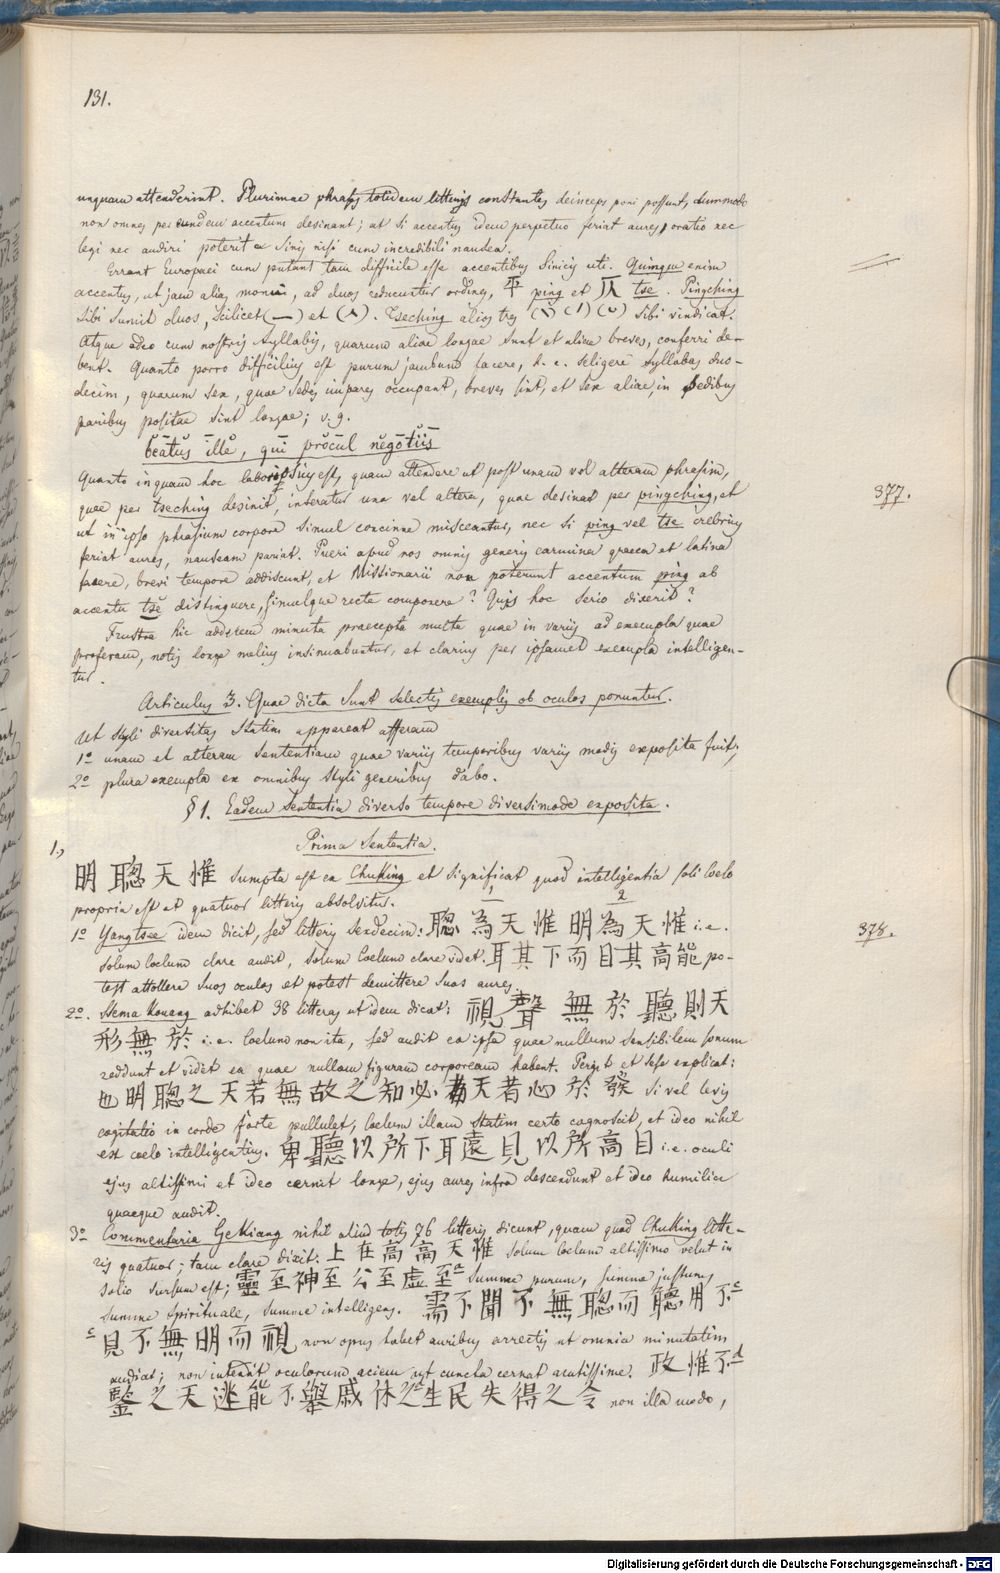 131.
unquam attenderint. Plurimae phrases totidem litteris constantes deinceps poni possunt, dummodo
non omnes per eundem accentum desinant; at si accentus idem perpetuo feriat aures, oratio nec
legi nec audiri poterit a Sinis nisi cum incredibili nausea.
Errant Europaei cum putant tam difficile esse accentibus Sinicis uti. Quinque enim
accentus, ut jam alias monui, ad duos reducuntur ordines, 平 ping et 仄 tse. Pingching
sibi sumit duos, scilicet (—) et (ʌ). Tseching alios tres (\) (/) (ᴗ) sibi vindicat.
Atque adeo cum nostris syllabis, quarum aliae longae sunt et aliae breves, conferri de-
bent. Quanto porro difficilius est purum jambum facere, h. e. seligere syllabas duo-
decim, quarum sex, quae sedes impares occupant, breves sint, et sex aliae, in pedibus
paribus positae sint longae; v. g.
beatus ille, qui procul negotiis
Quanto inquam hoc laboriosius est, quam attendere ut post unam vel alteram phrasim,
quae per tseching desinit, inseratur una vel altera, quae desinat per pingching, et
ut in ipso phrasium corpore simul concinne misceantur, nec si ping vel tse crebrius
feriat aures, nauseam pariat. Pueri apud nos omnis generis carmina graeca et latina
facere, brevi tempore addiscunt, et Missionarii non poterunt accentum ping ab
accentu tse distinguere, simulque recte componere? Quis hoc serio dixerit?
377.
Frustra hic adderem minuta praecepta multa quae in variis ad exempla quae
proferam, notis longe melius insinuabuntur, et clarius per ipsamet exempla intelligen-
tur.
Articulus 3. Quae dicta sunt selectis exemplis ob oculos ponuntur.
Ut styli diversitas statim appareat afferam
1º unam et alteram sententiam quae variis temporibus variis modis exposita fuit;
2º plura exempla ex omnibus styli generibus dabo.
§ 1. Eadem sententia diverso tempore diversimode exposita.
Prima Sententia.
1,
明 聰 天 惟 sumpta est ex Chuking et significat quod intelligentia soli Coelo
propria est et quatuor litteris absolvitur.
1 2
1º Yangtsee idem dicit, sed litteris sexdecim: 聰 為 天 惟 明 為 天 惟 i. e.
378.
solum Coelum clare audit, solum Coelum clare videt. 耳 其 下 而 目 其 高 能 po-
test attollere suos oculos et potest demittere suas aures.
2º. Ssema Kouang adhibet 38 litteras ut idem dicat: 視 聲 無 於 聽 則 天
形 無 於 i. e. Coelum non ita, sed audit ea ipsa quae nullum sensibilem sonum
reddunt et videt ea quae nullam figuram corpoream habent. Pergit et sese explicat:
也 明 聰 之 天 若 無 故 之 知 必 天 者 心 於 發 si vel levis
cogitatio in corde forte pullulet, Coelum illam statim certo cognoscit, et ideo nihil
est coelo intelligentius. 卑 聽 以 所 下 耳 遠 見 以 所 高 目 i. e. oculi
ejus altissimi et ideo cernit longe, ejus aures infra descendunt et ideo humilia
quaeque audit.
3º Commentaria Gekiang nihil aliud totis 76 litteris dicunt, quam quod Chuking litte-
ris quatuor; tam clare dixit: 上 在 高 高 天 惟 solum Coelum altissimo velut in
solio sursum est; 靈 至 神 至 公 至 虛 至 a summe purum, summe justum,
summe spirituale, summe intelligens. 需 不 聞 不 無 聰 而 聽 用 不 c
c 見 不 無 明 而 視 non opus habet auribus arrectis ut omnia minutatim
audiat; non intendit oculorum aciem ut cuncta cernat acutissime. 政 惟 不 d
鑒 之 天 逃 能 不 舉 戚 休 之 生 民 失 得 之 令 non illa modo,
Digitalisierung gefördert durch die Deutsche Forschungsgemeinschaft - DFG